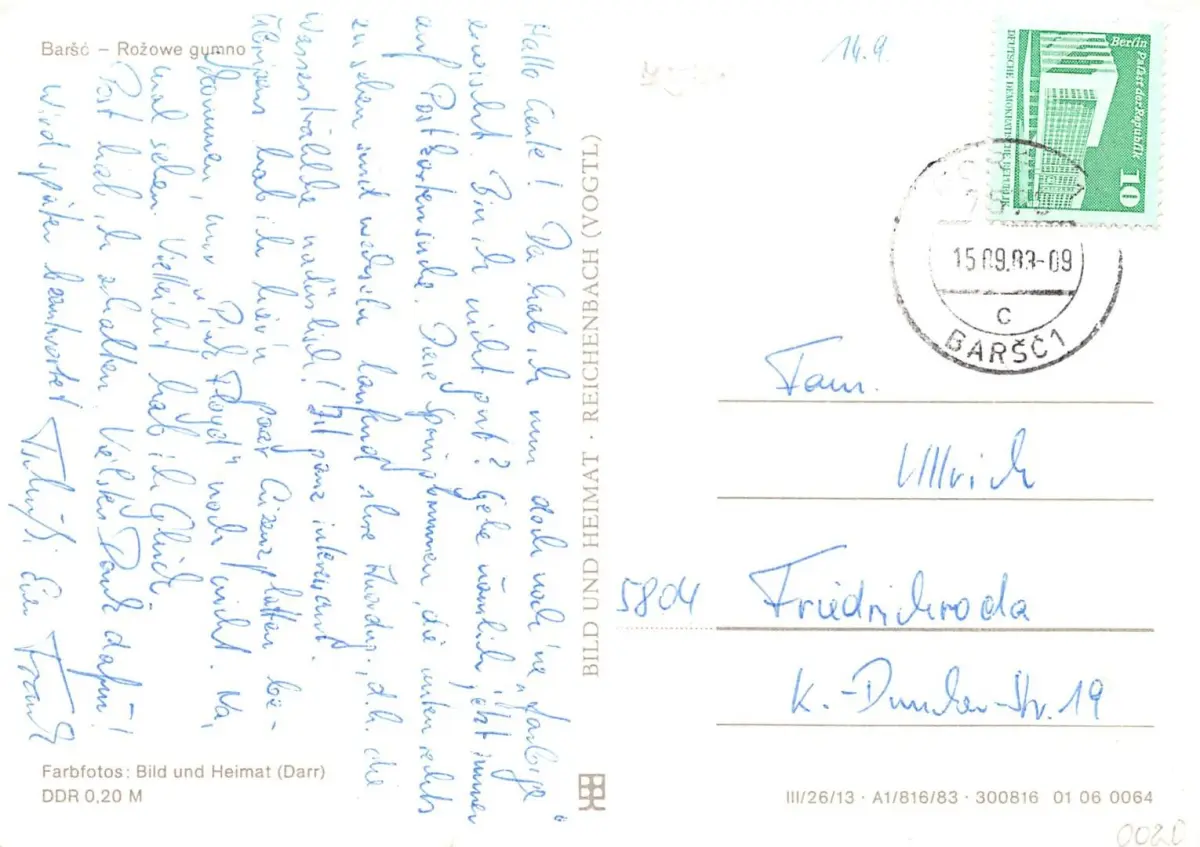 Baršć – Rožowe gumno
14.9.
Hallo Leute! Da hab ich nun doch noch 'ne „farbige“
erwischt. Bin ich nicht gut? Gehe nämlich jetzt immer
auf Postkartensuche. Diese Springbrunnen, die unten rechts
zu sehen sind wechseln laufend ihre Anordng., d.h. die
Wasserstrahlen natürlich! Ist ganz interessant.
Übrigens hab ich hier'n paar Lizenzplatten be-
kommen, nur „Pink Floyd“ noch nicht. Na,
mal sehen. Vielleicht hab ich Glück.
Post hab ich erhalten. Vielen Dank dafür!
Wird später beantwortet. Tschüß! Euer Frank
Farbfotos: Bild und Heimat (Darr)
DDR 0,20 M
BILD UND HEIMAT · REICHENBACH (VOGTL)
Berlin Palast der Republik
10
DEUTSCHE DEMOKRATISCHE REPUBLIK
15.09.83-09
C
BARŠĆ 1
Fam.
Ullrich
5804 Friedrichroda
K.-Duncker-Str. 19
III/26/13 · A1/816/83 · 300816 01 06 0064